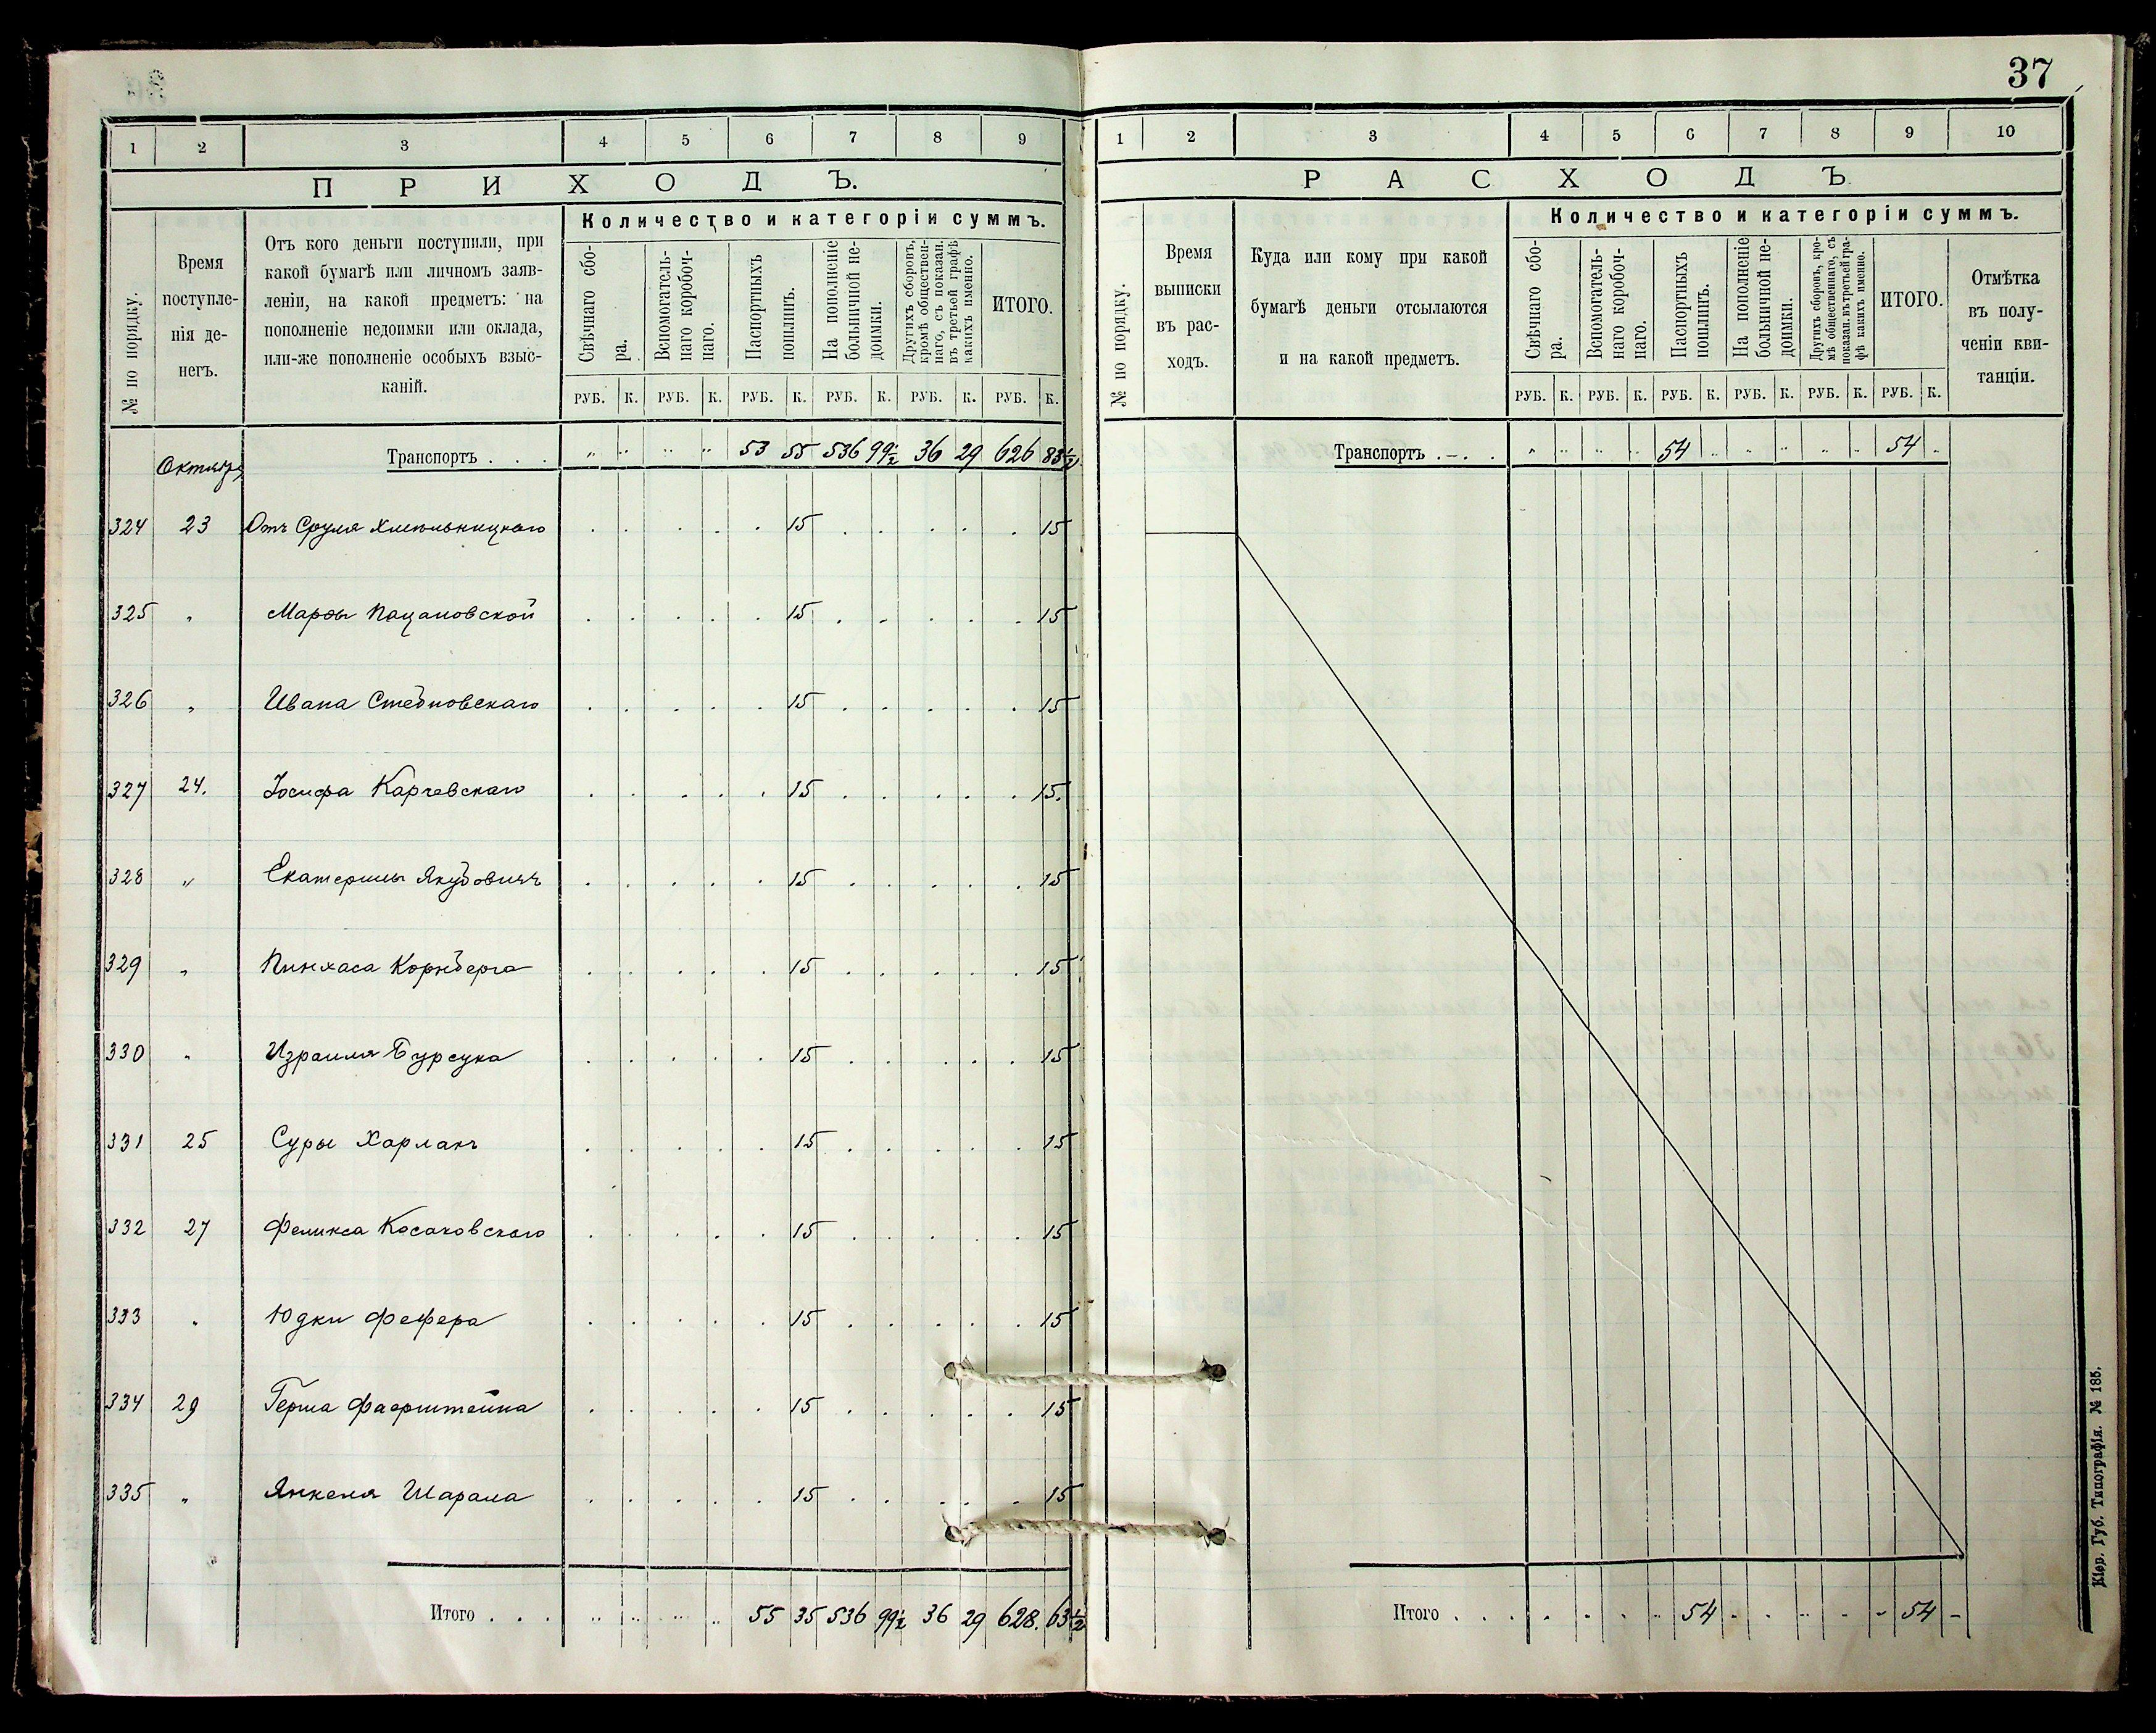 37
1 2 3 4 5 6 7 8 9
ПРИХОДЪ.
№ по порядку.
Время
поступле-
нія де-
негъ.
Отъ кого деньги поступили, при
какой бумагѣ или личномъ заяв-
леніи, на какой предметъ: на
пополненіе недоимки или оклада,
или-же пополненіе особыхъ взыс-
каній.
Количество и категоріи суммъ.
Свѣчнаго сбо-
ра.
Вспомогатель-
наго коробоч-
наго.
Паспортныхъ
пошлинъ.
На пополненіе
больничной не-
доимки.
Другихъ сборовъ,
кромѣ обществен-
наго, съ показан.
въ третьей графѣ
какихъ именно.
ИТОГО.
РУБ. К. РУБ. К. РУБ. К. РУБ. К. РУБ. К. РУБ. К.
Октября Транспортъ . . . " " " " 53 55 536 99½ 36 29 626 83½
324 23 Отъ Сруля Хмельницкаго 15 15
325 " Марѳы Пацановской 15 15
326 " Ивана Стебновскаго 15 15
327 24. Іосифа Карчевскаго 15 15.
328 " Екатерины Якубовичъ 15 15
329 " Пинхаса Корнберга 15 15
330 " Израиля Бурсука 15 15
331 25 Суры Харлакъ 15 15
332 27 Феликса Косаковскаго 15 15
333 " Юдки Фефера 15 15
334 29 Герша Фаерштейна 15 15
335 " Янкеля Шарапа 15 15
Итого . . . " " " " 55 35 536 99½ 36 29 628. 63½
1 2 3 4 5 6 7 8 9 10
РАСХОДЪ
№ по порядку.
Время
выписки
въ рас-
ходъ.
Куда или кому при какой
бумагѣ деньги отсылаются
и на какой предметъ.
Количество и категоріи суммъ.
Свѣчнаго сбо-
ра.
Вспомогатель-
наго коробоч-
наго.
Паспортныхъ
пошлинъ.
На пополненіе
больничной не-
доимки.
Другихъ сборовъ, кро-
мѣ общественнаго, съ
показан. въ третьей гра-
фѣ какихъ именно.
ИТОГО.
Отмѣтка
въ полу-
ченіи кви-
танціи.
РУБ. К. РУБ. К. РУБ. К. РУБ. К. РУБ. К. РУБ. К.
Транспортъ . – . . " " " " 54 " " " " " 54 "
Итого . . . . . . . 54 - - " - - 54 -
Кіев. Губ. Типографія. № 185.